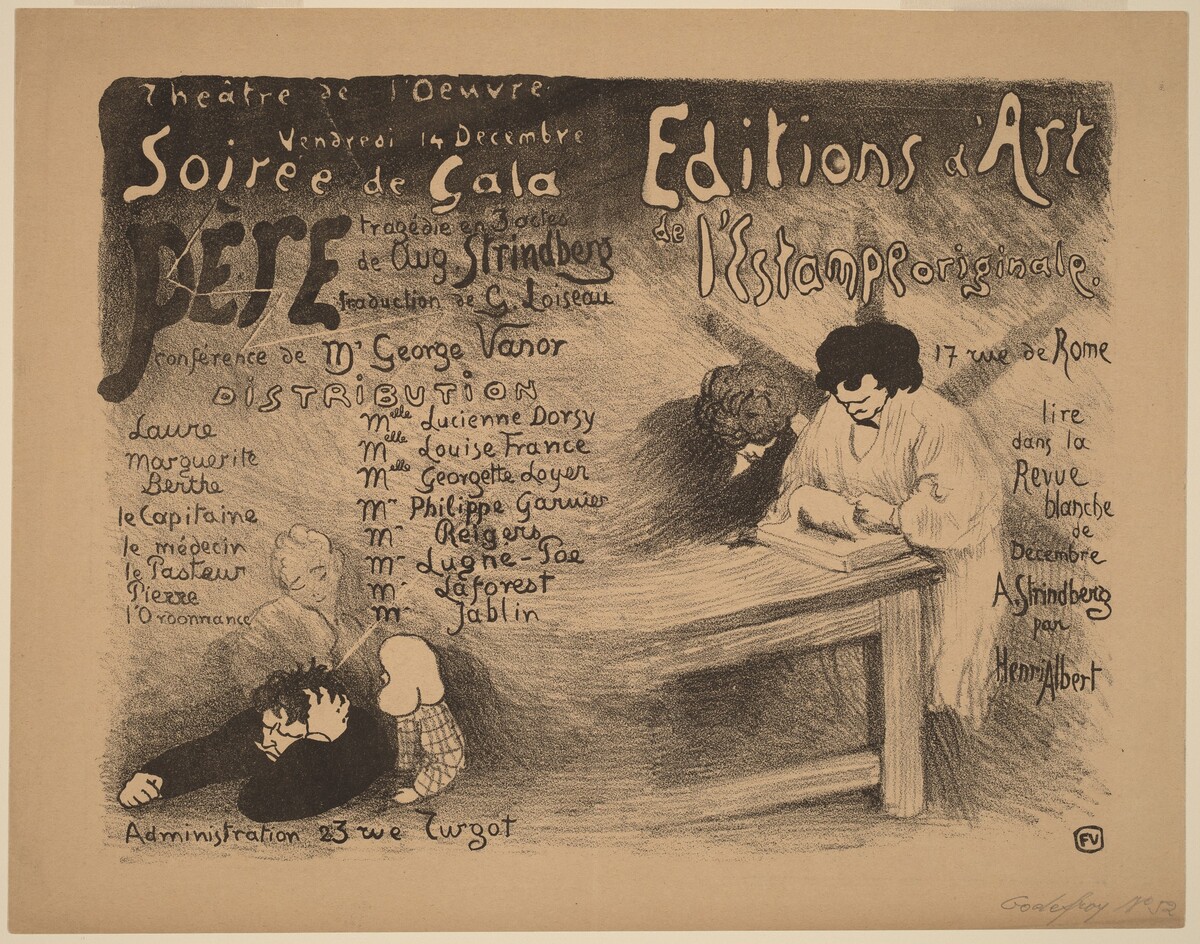 Theâtre de l'Oeuvre
Vendredi 14 Decembre
Soirée de Gala
PÈRE
tragédie en 3 actes
de Aug. Strindberg
traduction de G. Loiseau
conférence de Mr George Vanor
DISTRIBUTION
Laure Melle Lucienne Dorsy
Marguerite Melle Louise France
Berthe Melle Georgette Loyer
le Capitaine Mr Philippe Garnier
le médecin Mr Reigers
le Pasteur Mr Lugne-Poe
Pierre Mr Laforest
l'Ordonnance Mr Jablin
Administration 23 rue Turgot
Editions d'Art
de l'Estampe originale.
17 rue de Rome
lire
dans la
Revue
blanche
de
Decembre
A. Strindberg
par
Henri Albert
FV
Godefroy No 52